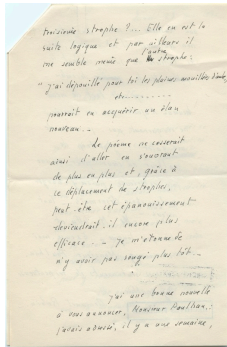 troisième strophe ?... Elle en est la
suite logique et par ailleurs il
me semble mieux que l'autre strophe :
"j'ai dépouillé pour toi les plaines mouillées d'aube,
etc.
pourrait en acquérir un élan
nouveau...
Le poème ne cesserait
ainsi d'aller en s'ouvrant
de plus en plus et, grâce à
ce déplacement de strophes,
peut-être cet épanouissement
deviendrait-il encore plus
efficace... Je m'étonne de
n'y avoir pas songé plus tôt.
j'ai une bonne nouvelle
à vous annoncer, Monsieur Paulhan :
j'avais adressé, il y a une semaine,